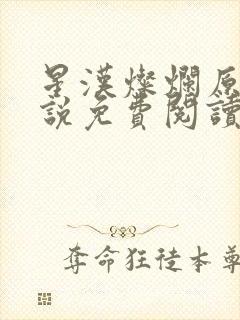 星漢燦爛原
說免費閱讀
奪命狂徒本尊